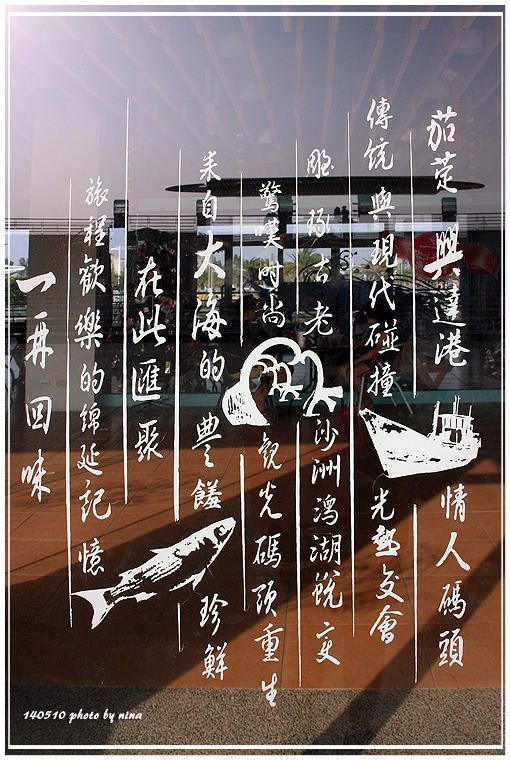 茄萣興達港 情人碼頭
傳統與現代碰撞 光熱交會
雕琢古老 沙洲潟湖蛻變
驚嘆時尚 觀光碼頭重生
來自大海的豐饒 珍鮮
在此匯聚
旅程歡樂的綿延記憶
一再回味
140510 photo by nina